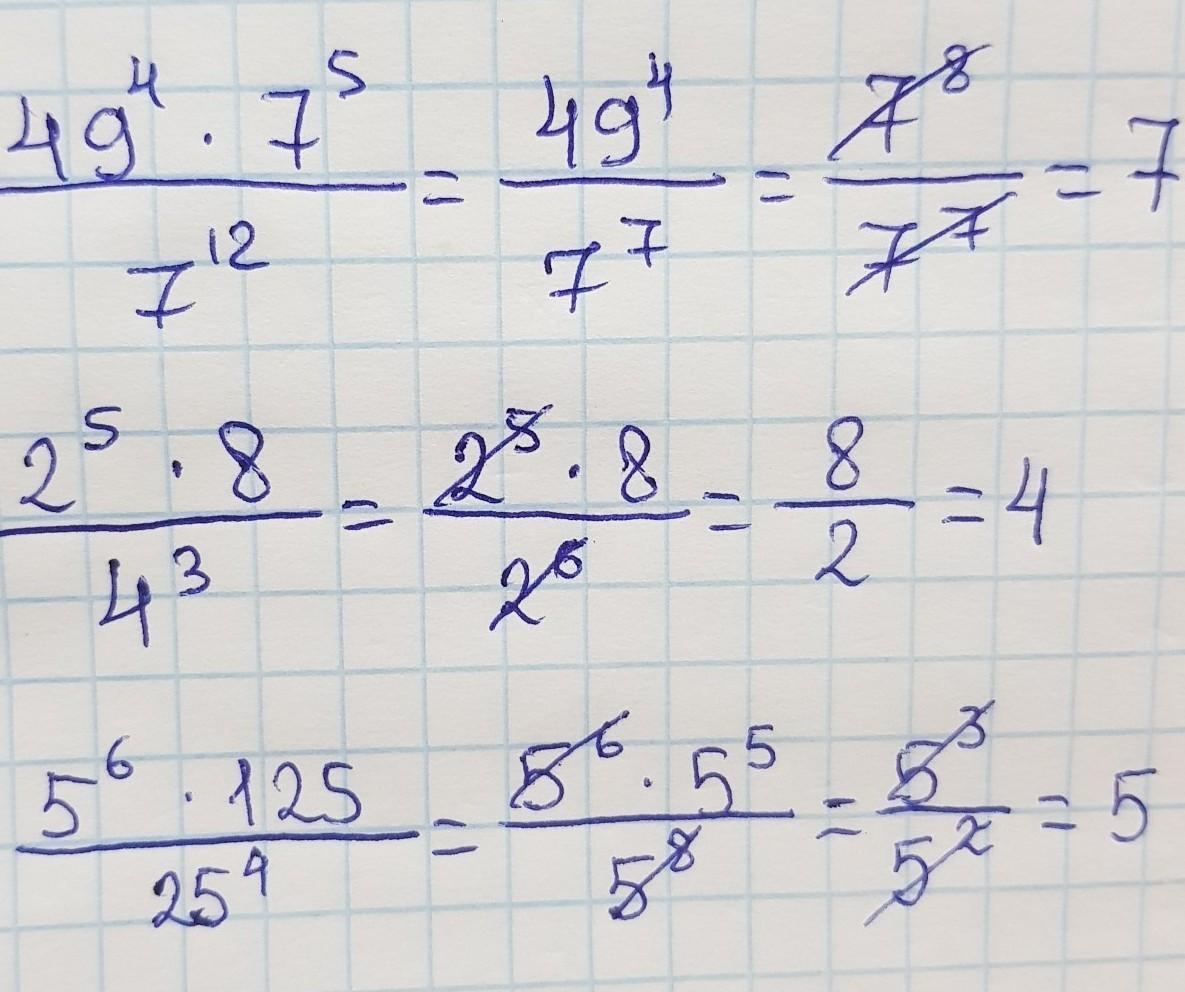 49⁴ · 7⁵ / 7¹² = 49⁴ / 7⁷ = 7⁸ / 7⁷ = 7
2⁵ · 8 / 4³ = 2⁵ · 8 / 2⁶ = 8 / 2 = 4
5⁶ · 125 / 25⁴ = 5⁶ · 5⁵ / 5⁸ = 5³ / 5² = 5